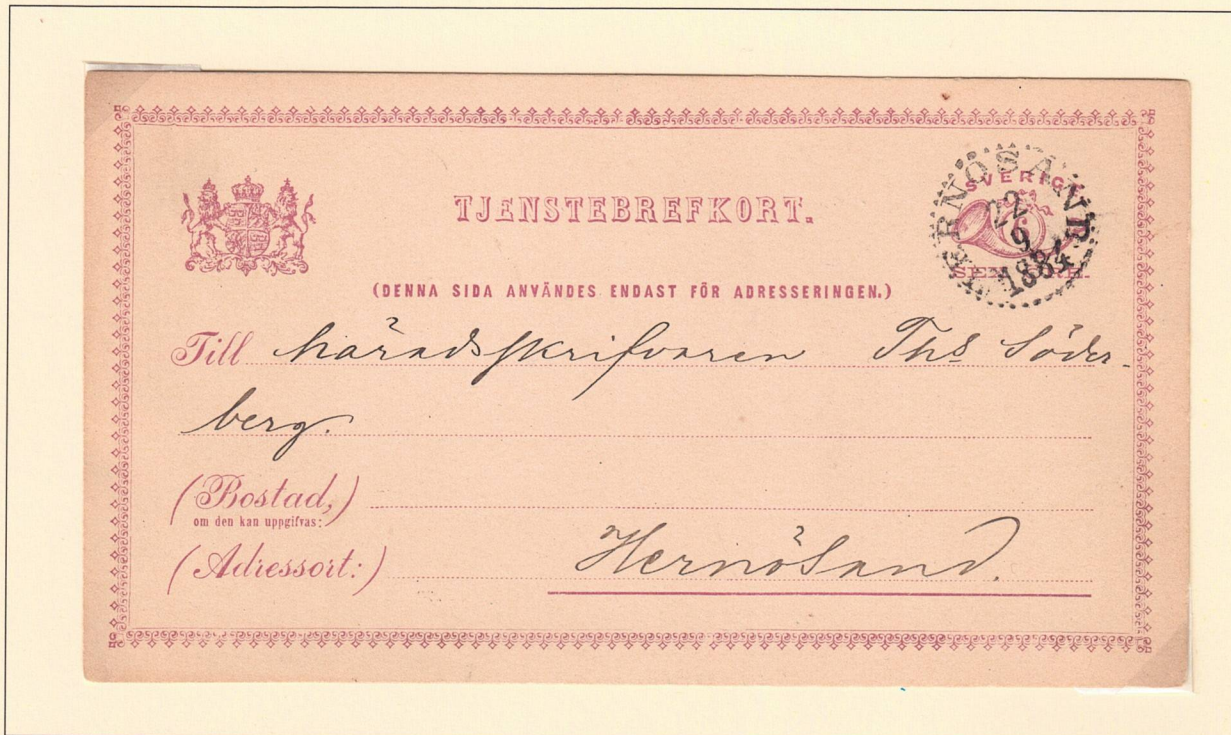 TJENSTEBREFKORT.
SVERIGE
6
SEX ÖRE.
HERNÖSAND
22
9
1884
(DENNA SIDA ANVÄNDES ENDAST FÖR ADRESSERINGEN.)
Till häradsskrifvaren Ths Söder-
berg.
(Bostad,)
om den kan uppgifvas:
(Adressort:) Hernösand.